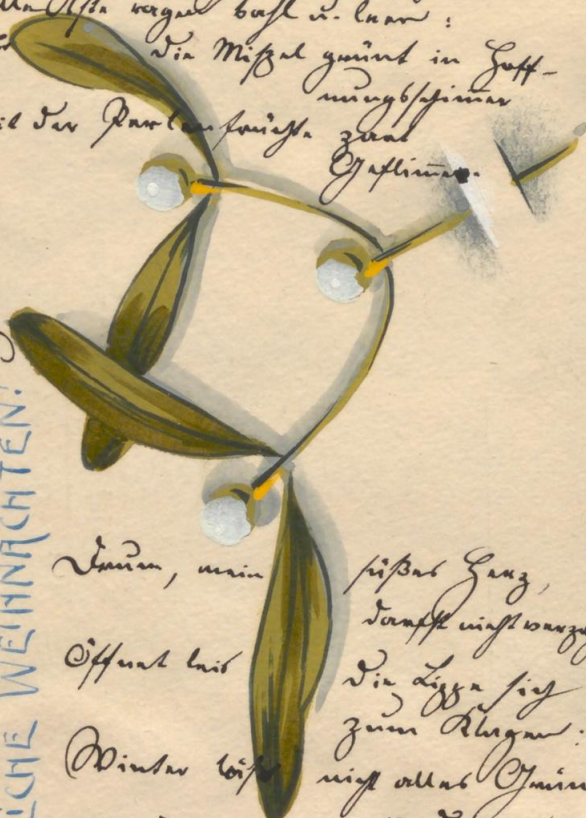 Äste ragen kahl u. leer:
die Mistel grünt in Hoff-
nungsschimmer
der Perlenfrüchte zart
Geflimmer.
Drum, mein süßes Herz,
darfst nicht verza
Öffnet leis die Lippe sich
zum Klagen:
Winter läßt nicht alles Grün
ICHE WEIHNACHTEN!